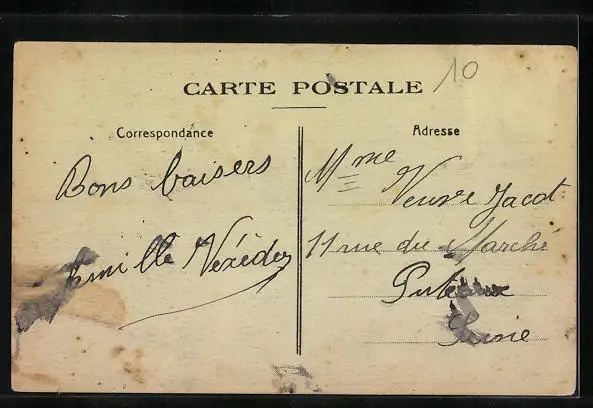 CARTE POSTALE
10
Correspondance
Bons baisers
Adresse
Mme
Veuve Jacot
11 rue du Marché
Puteaux
Seine